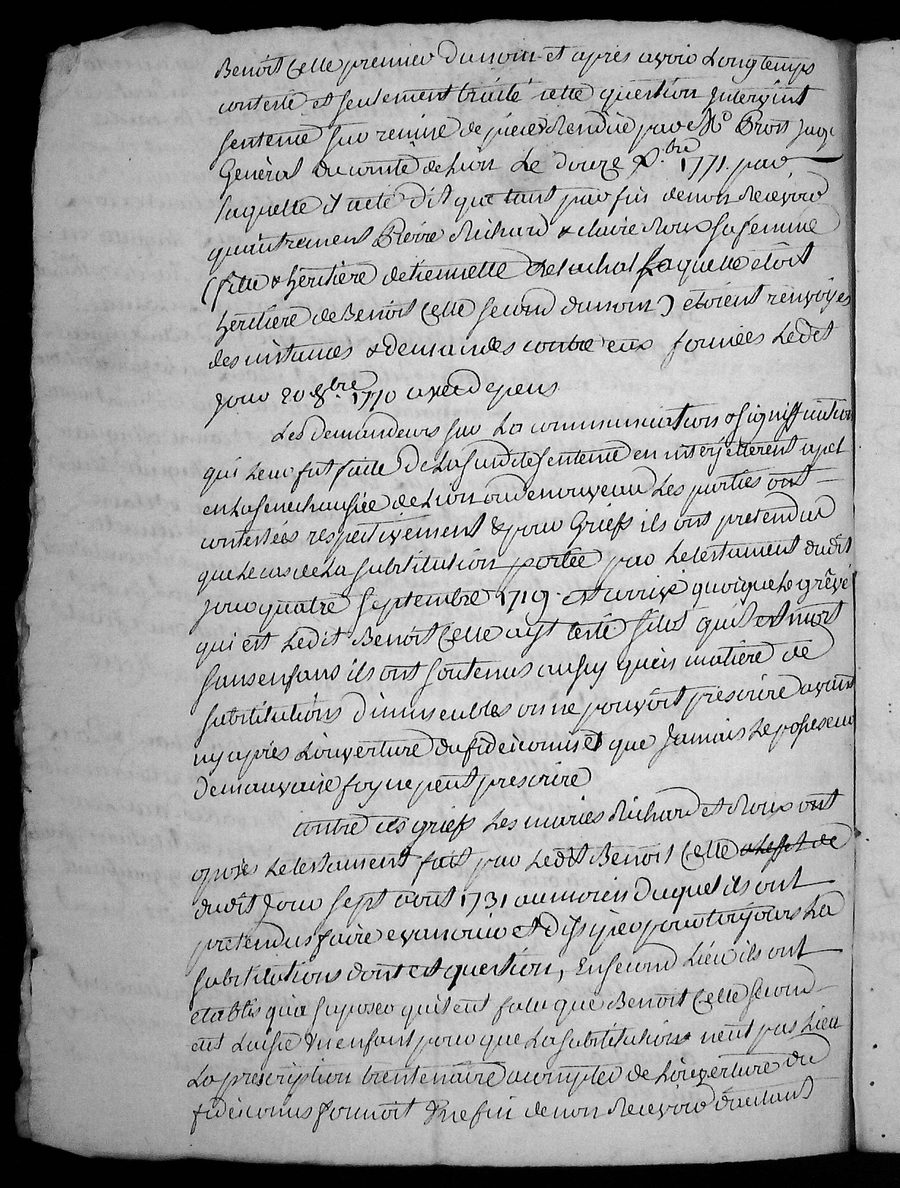 Benoit Celle premier du nom et apres avoir Longtemps
contesté et seulement traité cette question Intervint
sentence sur remise de pieces Rendüe par Me Prost Juge
Général du comté de Lion Le douze Xbre 1771. par
laquelle il a eté dit que tant par fin de non Recevoir
qu'autrement Pierre Richard & claire Roux sa femme
(fille & héritière detiennette Laquelle étoit
héritiere de Benoit Celle second du nom) étoient renvoyés
des instances & demandes contre eux formées Ledit
Jour 20 8bre 1770 avec depens
Les demandeurs sur La communication & signiffication
qui Leur fut faite de La susdite sentence en interjetterent apel
en La senechaussée de Lion ou denouveau Les parties ont
contestées respectivement & pour Griefs ils ont pretendu
que Le cas de La substitution portée par Le testament dudit
Jour quatre septembre 1719. est arrivé quoique Le grévé
qui est Ledit Benoit Celle ayt testé sitot qu'il est mort
sans enfans ils ont soutenus aussy qu'en matière de
substitutions d'immeubles on ne pouvoit prescrire avant
ny après L'ouverture du fideicomis et que Jamais Le possesseur
de mauvaise foy ne peut prescrire
contre ces griefs Les mariés Richard et Roux ont
oposés Le testament fait par Ledit Benoit Celle
dudit Jour sept aout 1731 au moien duquel ils ont
pretendus faire evanouir et dissiper pour toujours La
substitutions dont est question, En second Lieu ils ont
etablis qu'a suposer qu'il eut falu que Benoit Celle second
eut Laissé Un enfant pour que La substitution n'eut pas Lieu
La prescription trentenaire a compter de L'ouverture du
fideicomis formoit Une fin de non Recevoir d'autant